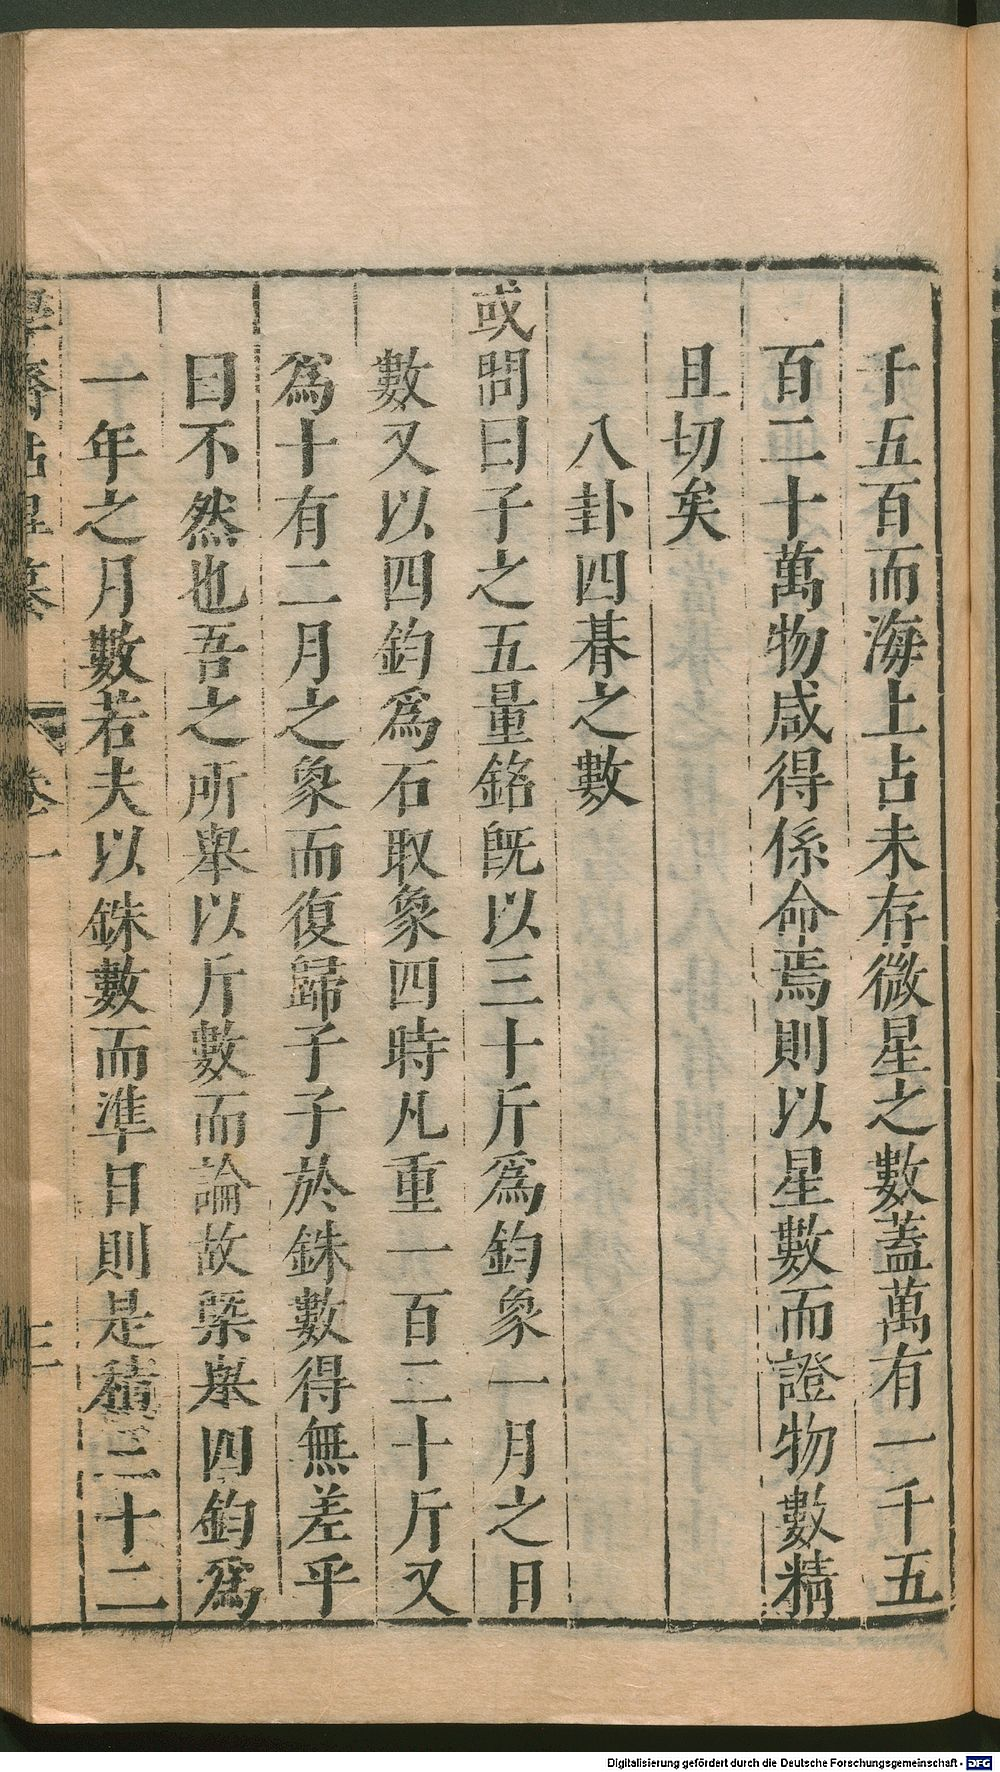 千五百而海上占未存微星之數蓋萬有一千五
百二十萬物咸得係命焉則以星數而證物數精
且切矣
八卦四朞之數
或問曰子之五量銘旣以三十斤爲鈞象一月之日
數又以四鈞爲石取象四時凡重一百二十斤又
爲十有二月之象而復歸子子於銖數得無差乎
曰不然也吾之所舉以斤數而論故槩舉四鈞爲
一年之月數若夫以銖數而準日則是積三十二
學齋佔畢 卷一 三
Digitalisierung gefördert durch die Deutsche Forschungsgemeinschaft - DFG